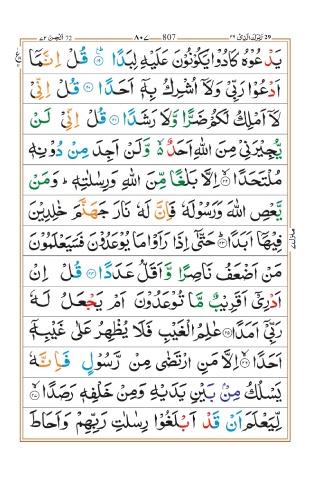 الجن ٧٢ 72 ٨٠٧ 807 تبٰرك الذى ٢٩ 29
يَدْعُوْهُ كَادُوْا يَكُوْنُوْنَ عَلَيْهِ لِبَدًا ۟ؕ ۱۹ قُلْ اِنَّمَاۤ
اَدْعُوْا رَبِّىْ وَلَاۤ اُشْرِكُ بِهٖۤ اَحَدًا ۲۰ قُلْ اِنِّىْ
لَاۤ اَمْلِكُ لَكُمْ ضَرًّا وَّلَا رَشَدًا ۲۱ قُلْ اِنِّىْ لَنْ
يُّجِيْرَنِىْ مِنَ اللّٰهِ اَحَدٌ ۙ۬ وَّلَنْ اَجِدَ مِنْ دُوْنِهٖ
مُلْتَحَدًا ۙ ۲۲ اِلَّا بَلٰغًا مِّنَ اللّٰهِ وَرِسٰلٰتِهٖ ؕ وَمَنْ
يَّعْصِ اللّٰهَ وَرَسُوْلَهٗ فَاِنَّ لَهٗ نَارَ جَهَنَّمَ خٰلِدِيْنَ
فِيْهَاۤ اَبَدًا ؕ ۲۳ حَتّٰۤى اِذَا رَاَوْا مَا يُوْعَدُوْنَ فَسَيَعْلَمُوْنَ
مَنْ اَضْعَفُ نَاصِرًا وَّاَقَلُّ عَدَدًا ۲۴ قُلْ اِنْ
اَدْرِىْۤ اَقَرِيْبٌ مَّا تُوْعَدُوْنَ اَمْ يَجْعَلُ لَهٗ
رَبِّىْۤ اَمَدًا ۲۵ عٰلِمُ الْغَيْبِ فَلَا يُظْهِرُ عَلٰى غَيْبِهٖۤ
اَحَدًا ۙ ۲۶ اِلَّا مَنِ ارْتَضٰى مِنْ رَّسُوْلٍ فَاِنَّهٗ
يَسْلُكُ مِنْۢ بَيْنِ يَدَيْهِ وَمِنْ خَلْفِهٖ رَصَدًا ۙ ۲۷
لِّيَعْلَمَ اَنْ قَدْ اَبْلَغُوْا رِسٰلٰتِ رَبِّهِمْ وَاَحَاطَ